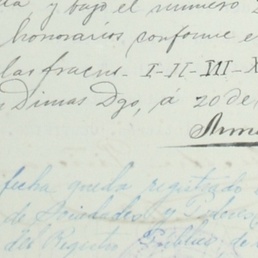 y bajo el numero
honorarios conforme e
las fraccs. I-II-III-X
Dimas Dgo, á 20 de
fecha queda registrado
de Sociedades y Poderes
del Registro Público de